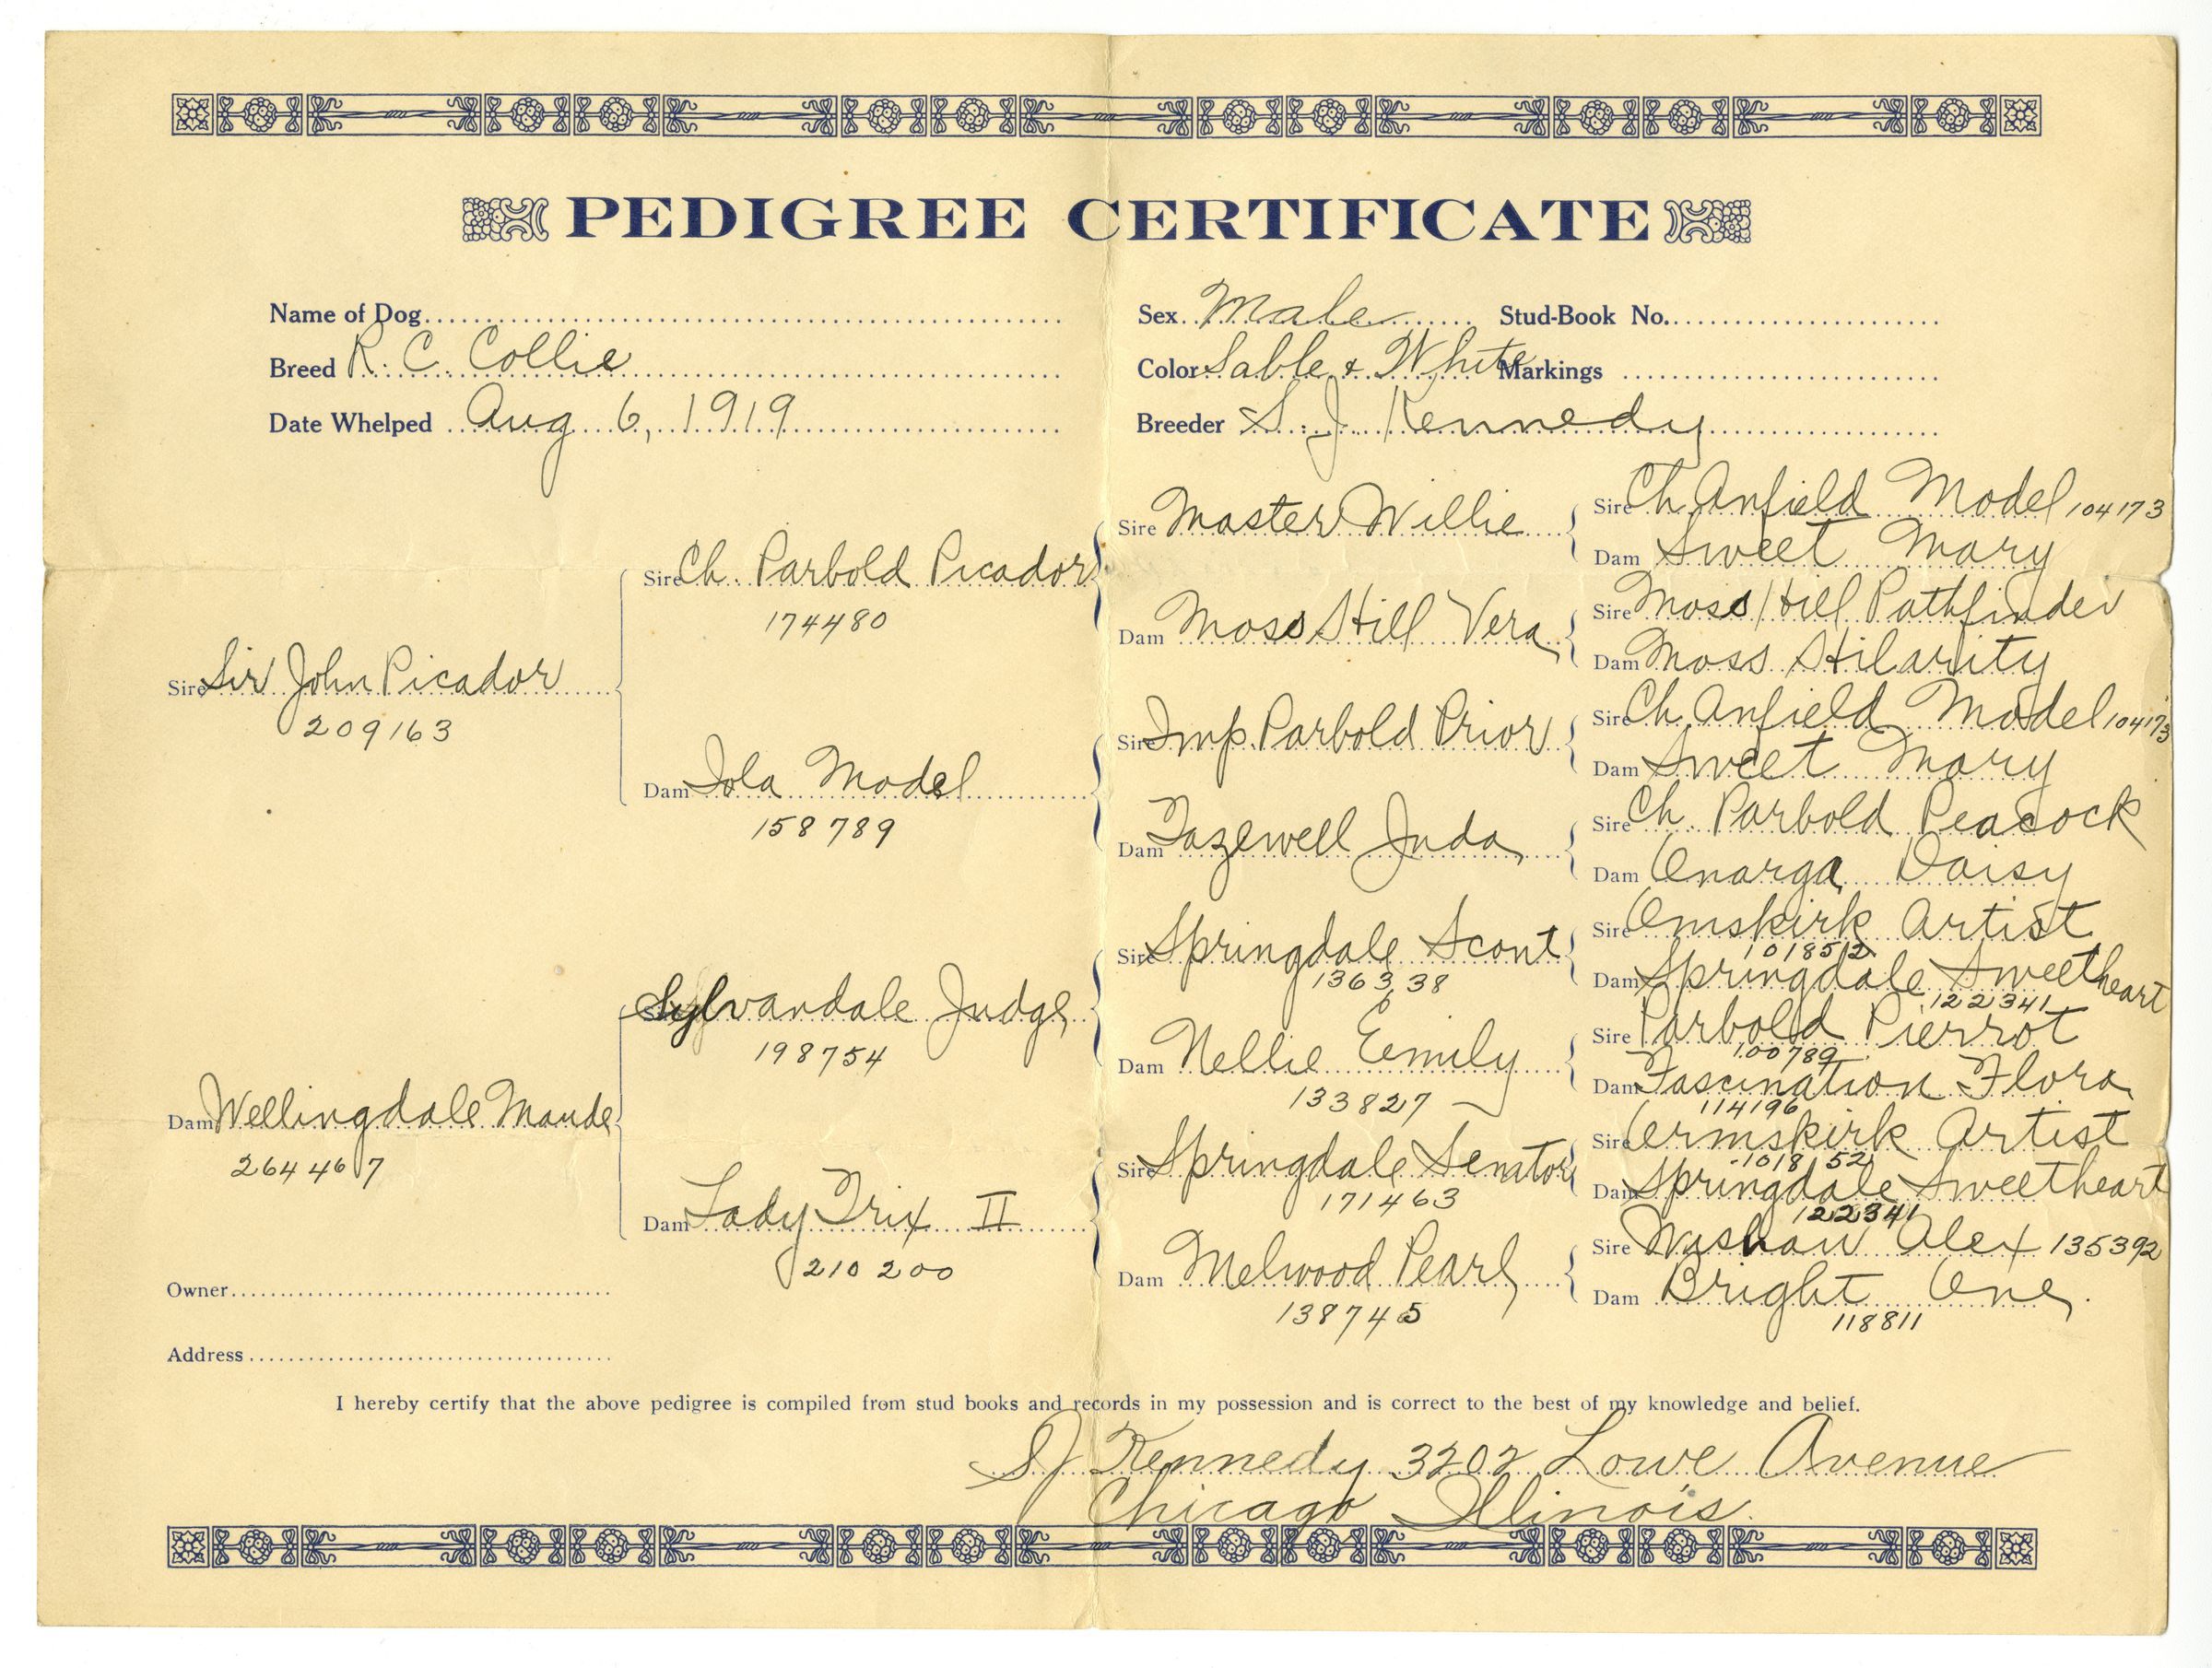 PEDIGREE CERTIFICATE
Name of Dog
Sex Male Stud-Book No.
Breed R. C. Collie
Color Sable & White Markings
Date Whelped Aug 6, 1919
Breeder S. J. Kennedy
Sire Sir John Picador
209163
Dam Wellingdale Maude
264467
Sire Ch. Parbold Picador
174480
Dam Iola Model
158789
Sylvandale Judge
198754
Dam Lady Trix II
210200
Sire Master Willie
Dam Moss Hill Vera
Sire Imp. Parbold Prior
Dam Tazewell Juda
Sire Springdale Scout
136338
6
Dam Nellie Emily
133827
Sire Springdale Senator
171463
Dam Melwood Pearl
138745
Sire Ch. Anfield Model 104173
Dam Sweet Mary
Sire Moss Hill Pathfinder
Dam Moss Hilarity
Sire Ch. Anfield Model 104173
Dam Sweet Mary
Sire Ch. Parbold Peacock
Dam Onarga Daisy
Sire Omskirk Artist
101852
Dam Springdale Sweetheart
122341
Sire Parbold Pierrot
100789
Dam Fascination Flora
114196
Sire Ormskirk Artist
101852
Dam Springdale Sweetheart
122341
Sire Wishaw Alex 135392
Dam Bright One
118811
Owner
Address
I hereby certify that the above pedigree is compiled from stud books and records in my possession and is correct to the best of my knowledge and belief.
SJ Kennedy 3202 Lowe Avenue
Chicago Illinois.